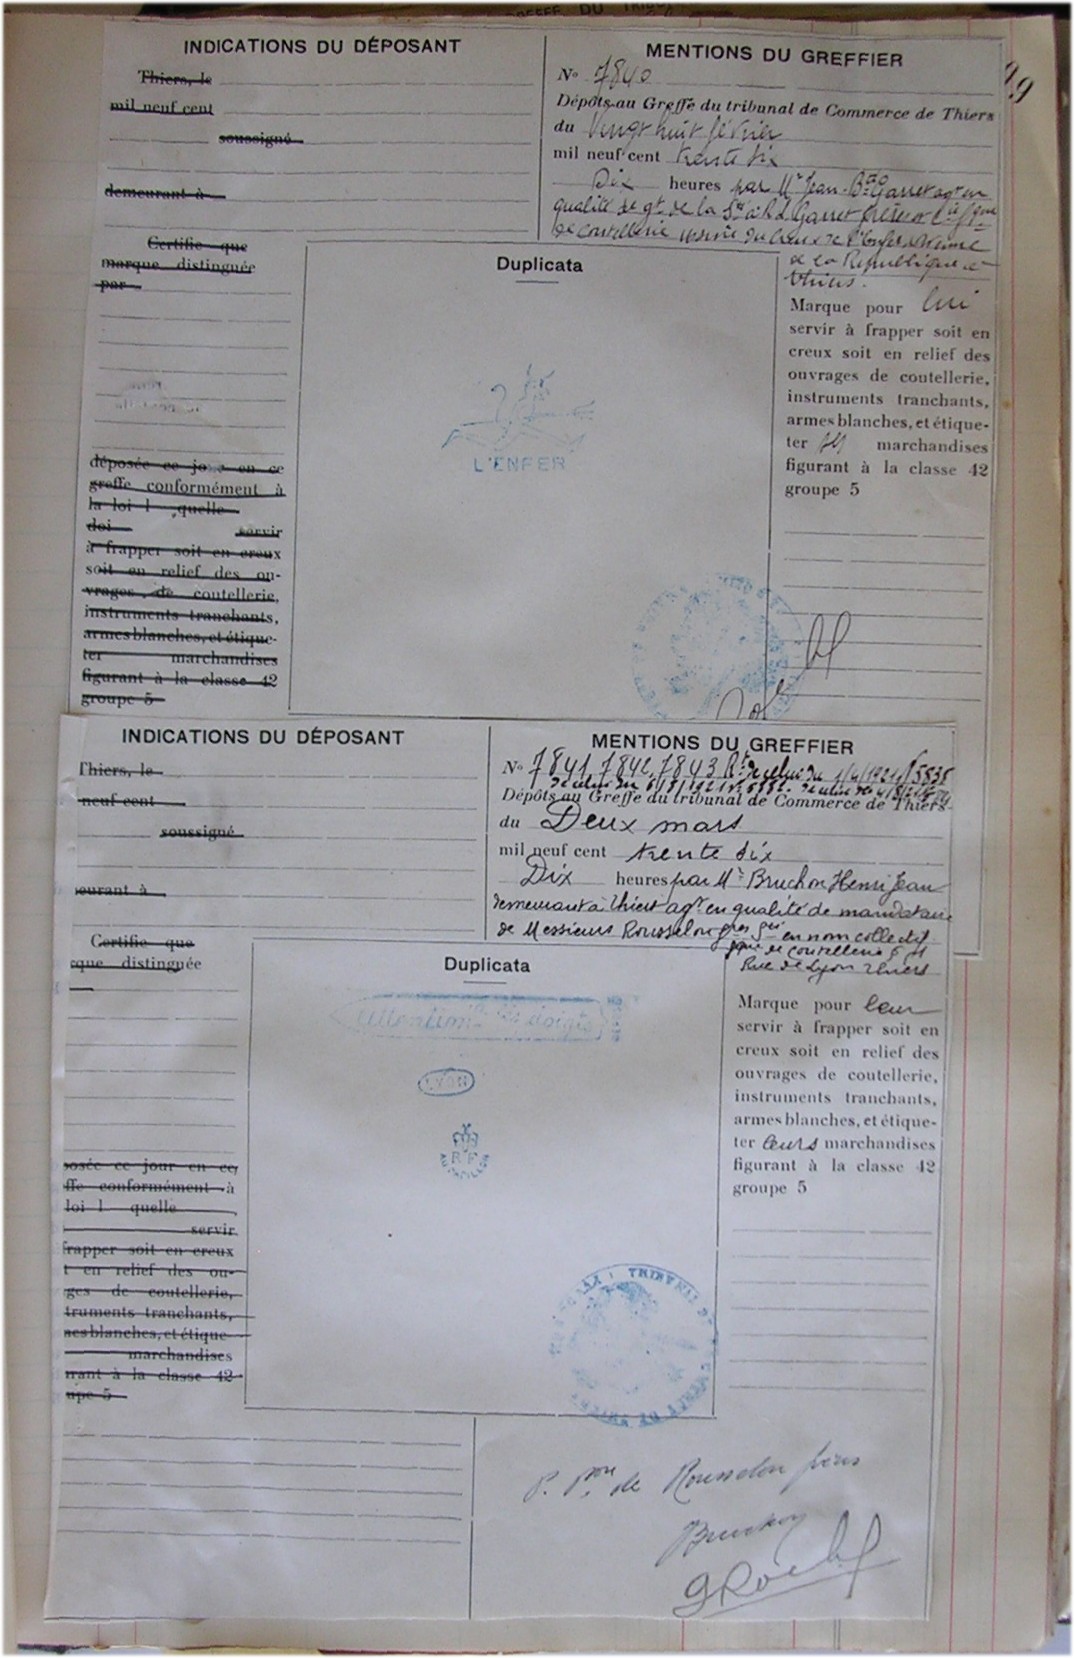 INDICATIONS DU DÉPOSANT
Thiers, le
mil neuf cent
soussigné
demeurant à
Certifie que
marque distinguée
par
déposée ce jour en ce
greffe conformément à
la loi l quelle
doi servir
à frapper soit en creux
soit en relief des ou-
vrages de coutellerie,
instruments tranchants,
armes blanches, et étique-
ter marchandises
figurant à la classe 42
groupe 5
Duplicata
L'ENFER
MENTIONS DU GREFFIER
No 7840
Dépôts au Greffe du tribunal de Commerce de Thiers
du Vingt huit février
mil neuf cent trente six
Dix heures par Mr Jean-Bte Garret agt en
qualité de gt de la Sté à R L Garret frères et Cie fque
de coutellerie usine du creux de l'Enfer Avenue
de la République à
Thiers.
Marque pour lui
servir à frapper soit en
creux soit en relief des
ouvrages de coutellerie,
instruments tranchants,
armes blanches, et étique-
ter marchandises
figurant à la classe 42
groupe 5
INDICATIONS DU DÉPOSANT
Thiers, le
neuf cent
soussigné
eurant à
Certifie que
rque distinguée
posée ce jour en ce
ffe conformément à
loi l quelle
servir
frapper soit en creux
t en relief des ou-
ges de coutellerie,
truments tranchants,
mes blanches, et étique-
marchandises
rant à la classe 42
upe 5
Duplicata
Attention les doigts
LYON
R F
AU PAPILLON
TRIBUNAL DE COMMERCE DE THIERS
MENTIONS DU GREFFIER
No 7841, 7842, 7843 Rt de celui du 1/4/1921 No 5535
Dépôts au Greffe du tribunal de Commerce de Thiers
du Deux mars
mil neuf cent trente six
Dix heures par Mr Bruchon Henri Jean
demeurant à Thiers agt en qualité de mandataire
de Messieurs Rousselon en nom collectif
de coutellerie
Rue de Lyon Thiers
Marque pour leur
servir à frapper soit en
creux soit en relief des
ouvrages de coutellerie,
instruments tranchants,
armes blanches, et étique-
ter leurs marchandises
figurant à la classe 42
groupe 5
P. Pon de Rousselon frères
Bruchon